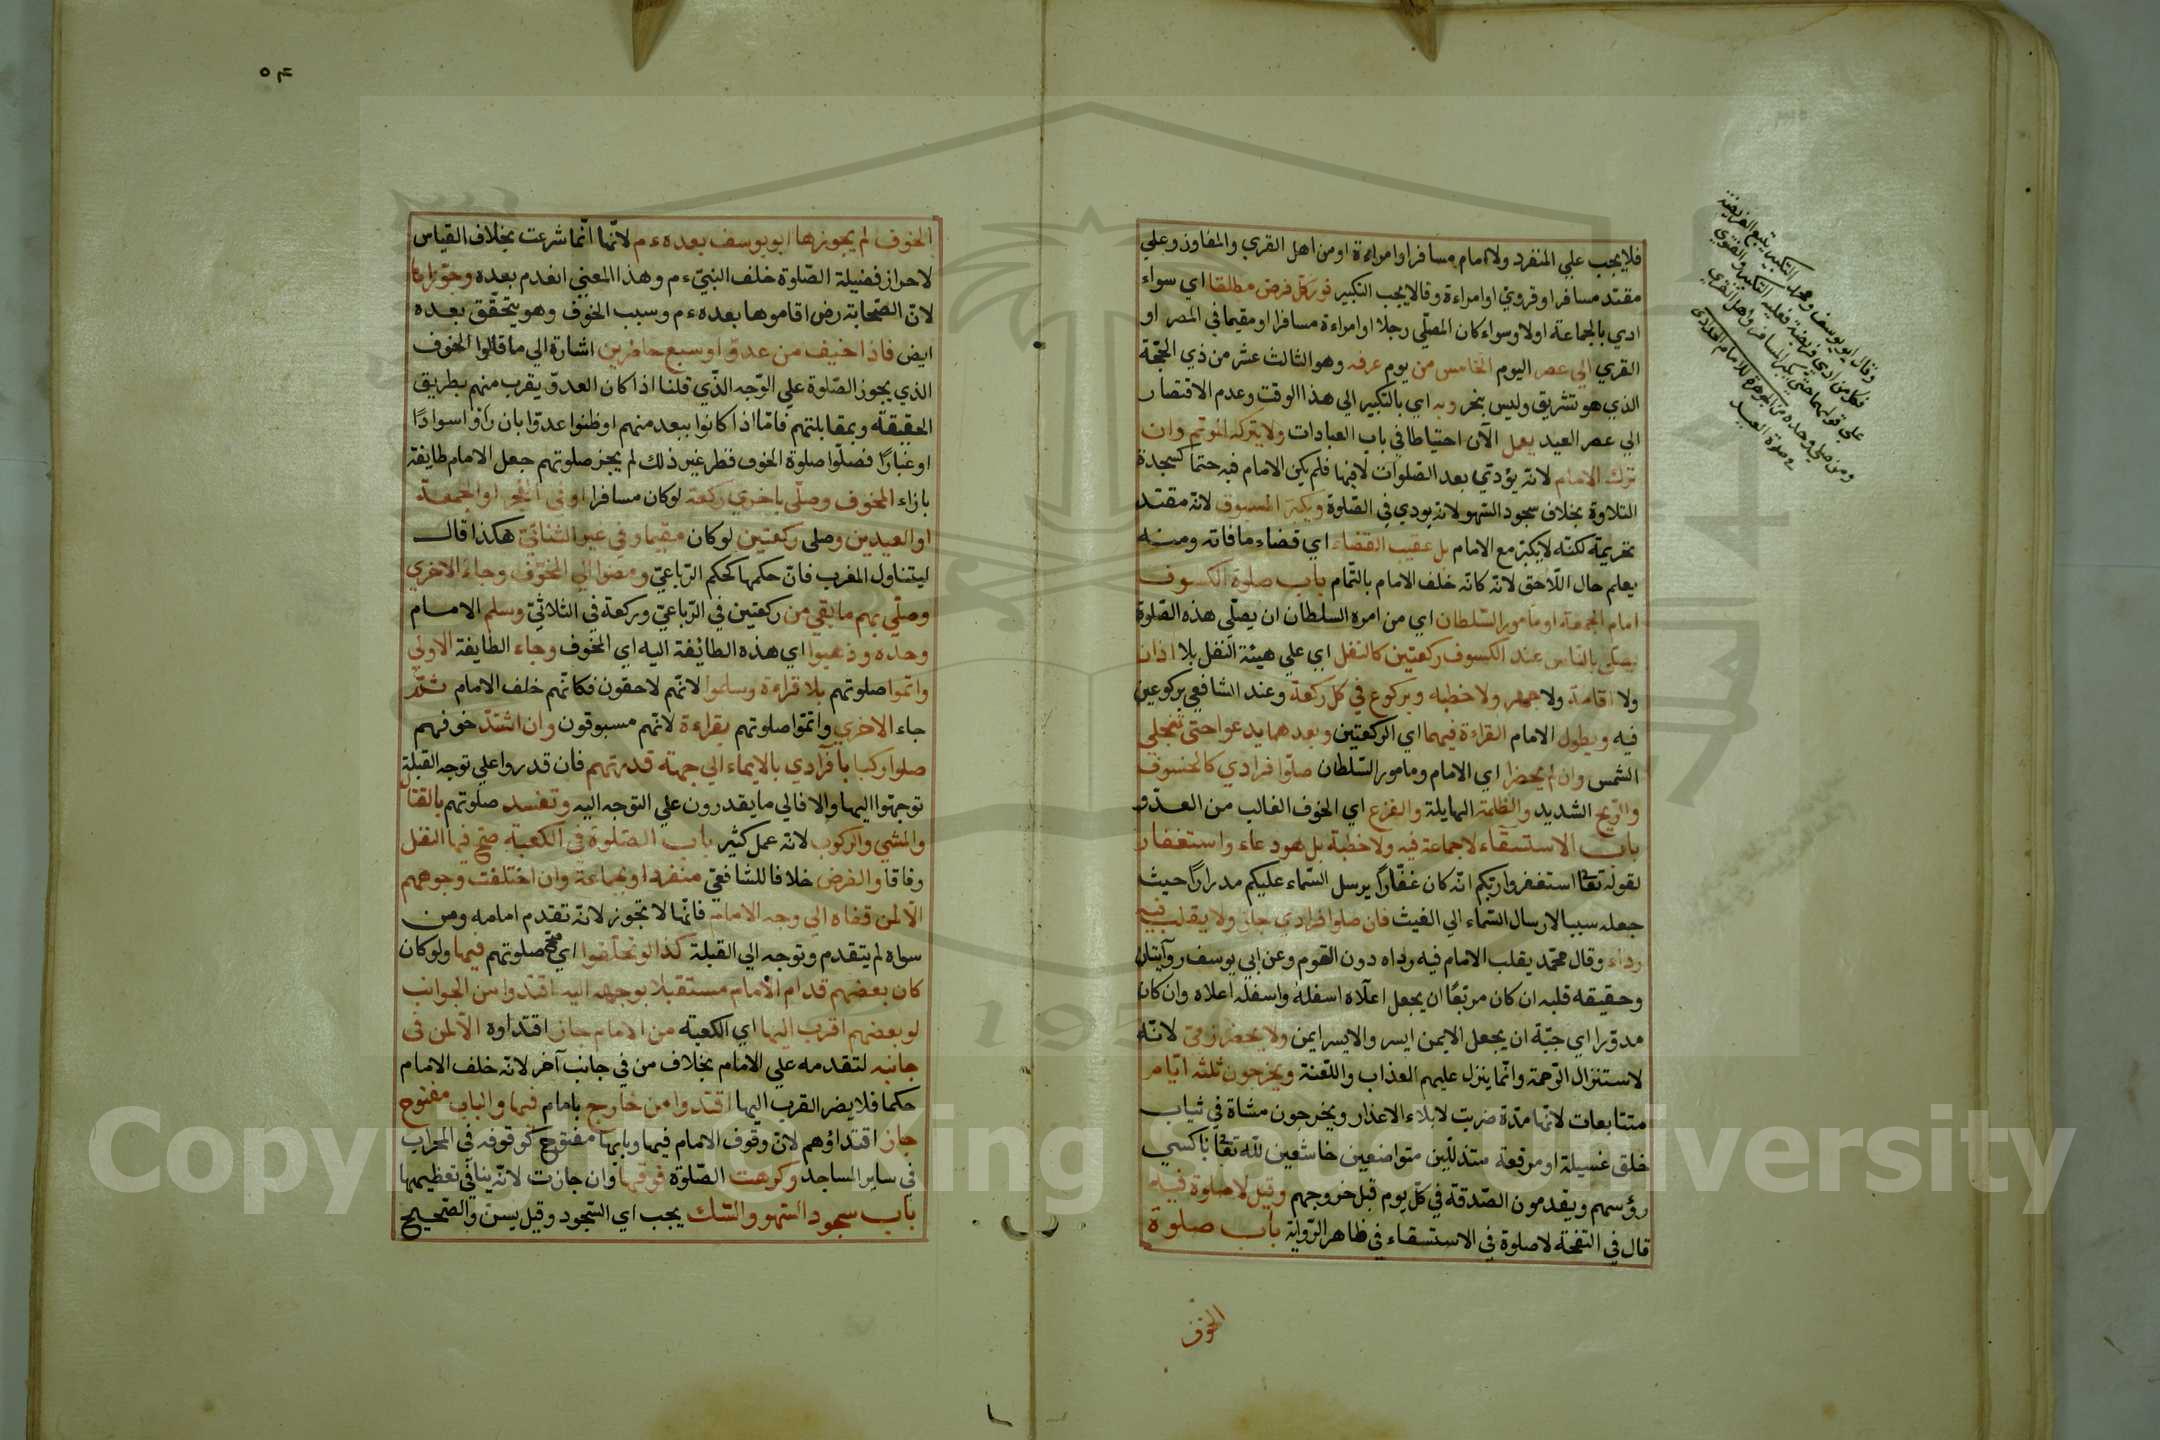 فلا يجب علي المنفرد ولا امام مسافرا وامراءة او من اهل القري والمفاوز وعلي
مقتد مسافرا وقروي او امراءة وقالا يجب التكبير فور كل فرض مطلقا اي سواء
ادي بالجماعة اولا وسواء كان المصلّي رجلا او امراءة مسافرا او مقيما في المصر او
القري الي عصر اليوم الخامس من يوم عرفه وهو الثالث عشر من ذي الحجّة
الذي هو تشريق وليس بنحر وبه اي بالتكبير الي هذا الوقت وعدم الاقتصار
الي عصر العيد يعمل الآن احتياطا في باب العبادات ولا يتركه المؤتم وان
ترك الامام لانّه يؤدّي بعد الصّلوات لا فيها فلم يكن الامام فيه حتما كسجدة
التلاوة بخلاف سجود السّهو لانّه يودي في الصّلوة ويكبّر المسبوق لانّه مقتد
تحريمة لكنّه لا يكبّر مع الامام بل عقيب القضاء اي قضاء ما فاته ومنه
يعلم حال اللّاحق لانّه كانّه خلف الامام بالتّمام باب صلوة الكسوف
امام الجمعة او مأمور السّلطان اي من امره السلطان ان يصلّي هذه الصّلوة
يصلّي بالناس عند الكسوف ركعتين كالنفل اي علي هيئة النفل بلا اذان
ولا اقامة ولا جهر ولا خطبه وبركوع في كلّ ركعة وعند الشافعي بركوعين
فيه ويطول الامام القراءة فيهما اي الركعتين وبعدهما يدعوا حتي تنجلي
الشمس وان لم يحضرا اي الامام ومامور السّلطان صلّوا فرادي كالخسوف
والرّيح الشديد والظلمة الهايلة والفزع اي الخوف الغالب من العدّو
باب الاستسقاء لا جماعة فيه ولا خطبة بل هو دعاء واستغفار
لقوله تعا استغفروا ربّكم انّه كان غفّارًا يرسل السّماء عليكم مدرارًا حيث
جعله سببا لارسال السّماء الي الغيث فان صلوا فرادي جاز ولا يقلب فيه
رداء وقال محمّد يقلب الامام فيه رداه دون القوم وعن ابي يوسف روآيتان
وحقيقه قلبه ان كان مربّعًا ان يجعل اعلاه اسفله واسفله اعلاه وان كان
مدوّرا اي جبّة ان يجعل الايمن ايسر والايسر ايمن ولا يحضر ذمّي لانّه
لاستنزال الرّحمة وانّما ينزل عليهم العذاب واللّعنة ويخرجون ثلثه ايّام
متتابعات لانّها مدّة ضربت لابلاء الاعذار ويخرجون مشاة في ثياب
خلق غسيلة او مرقعة متذلّلين متواضعين خاشعين للّه تعا ناكسي
رؤسهم ويقدمون الصّدقة في كلّ يوم قبل خروجهم وقيل لا صلوة فيه
قال في التحفة لا صلوة في الاستسقاء في ظاهر الرّواية باب صلوة
الخوف
وقال ابو يوسف ومحمد التكبير يتبع الفريضة
فكل من ادي فريضة فعليه التكبير والفتوي
علي قولهما حتي يكبر المسافر واهل القري
ومن صلي وحده من الجوهرة للامام الحدادي
في صلوة العيد
٥٤
الخوف لم يجوزها ابو يوسف بعده ءم لانّها انّما شرعت بخلاف القياس
لاحراز فضيلة الصّلوة خلف النبيّ ءم وهذا المعني انعدم بعده وجوّزاها
لانّ الصّحابة رض اقاموها بعده ءم وسبب الخوف وهو يتحقّق بعده
ايض فاذا خيف من عدوّ او سبع حاضرين اشارة الي ما قالوا الخوف
الذي يجوز الصّلوة علي الوّجه الذّي قلنا اذا كان العدوّ يقرب منهم بطريق
الحقيقة وبمقابلتهم فامّا اذا كانوا ببعد منهم او ظنوا عدوّا بان رأوا سوادًا
او غبارًا فصلّوا صلوة الخوف فظر غير ذلك لم يجز صلوتهم جعل الامام طايفة
بازاء المخوف وصلّي باخري ركعة لو كان مسافرا او في الفجر او الجمعة
او العيدين وصلي ركعتين لو كان مقيما وفي غير الثنائيّ هكذا قال
ليتناول المغرب فانّ حكمها كحكم الرّباعيّ ومضوا الي المخوف وجاء الاخري
وصلّي بهم ما بقي من ركعتين في الرّباعيّ وركعة في الثلاثيّ وسلم الامام
وحده وذهبوا اي هذه الطائفة اليه اي المخوف وجاء الطايفة الاولي
واتمّوا صلوتهم بلا قراءة وسلموا لانّهم لاحقون فكانّهم خلف الامام ثمّ
جاء الاخري واتمّوا صلوتهم بقراءة لانّهم مسبوقون وان اشتدّ خوفهم
صلوا ركبانا فرادي بالايماء الي جهة قدرتهم فان قدروا علي توجه القبلة
توجهّوا اليها والا فالي ما يقدرون علي التوجه اليه وتفسد صلوتهم بالقتال
والمشي والركوب لانّه عمل كثير باب الصّلوة في الكعبة صحّ فيها النفل
وفاقا والفرض خلافا للشافعيّ منفردا وبجماعة وان اختلفت وجوههم
الّا لمن قفاه الي وجه الامام فانّها لا تجوز لانّه تقدم امامه ومن
سواه لم يتقدم وتوجه الي القبلة كذا لو تحلّقوا اي صحّ صلوتهم فيها ولو كان
كان بعضهم قدام الامام مستقبلا بوجهه اليه اقتدوا من الجوانب
لو بعضهم اقرب اليها اي الكعبة من الامام جاز اقتداوه الّا لمن في
جانبه لتقدمه علي الامام بخلاف من في جانب آخر لانّه خلف الامام
حكما فلا يضر القرب اليها اقتدوا من خارج بامام فيها والباب مفتوح
جاز اقتداؤهم لانّ وقوف الامام فيها وبابها مفتوح كوقوفه في المحراب
في ساير المساجد وكرهت الصّلوة فوقها وان جازت لانّه ينافي تعظيمها
باب سجود السّهو والشّك يجب اي السّجود وقيل يسنّ والصّحيح
Copyright © King Saud University
1957